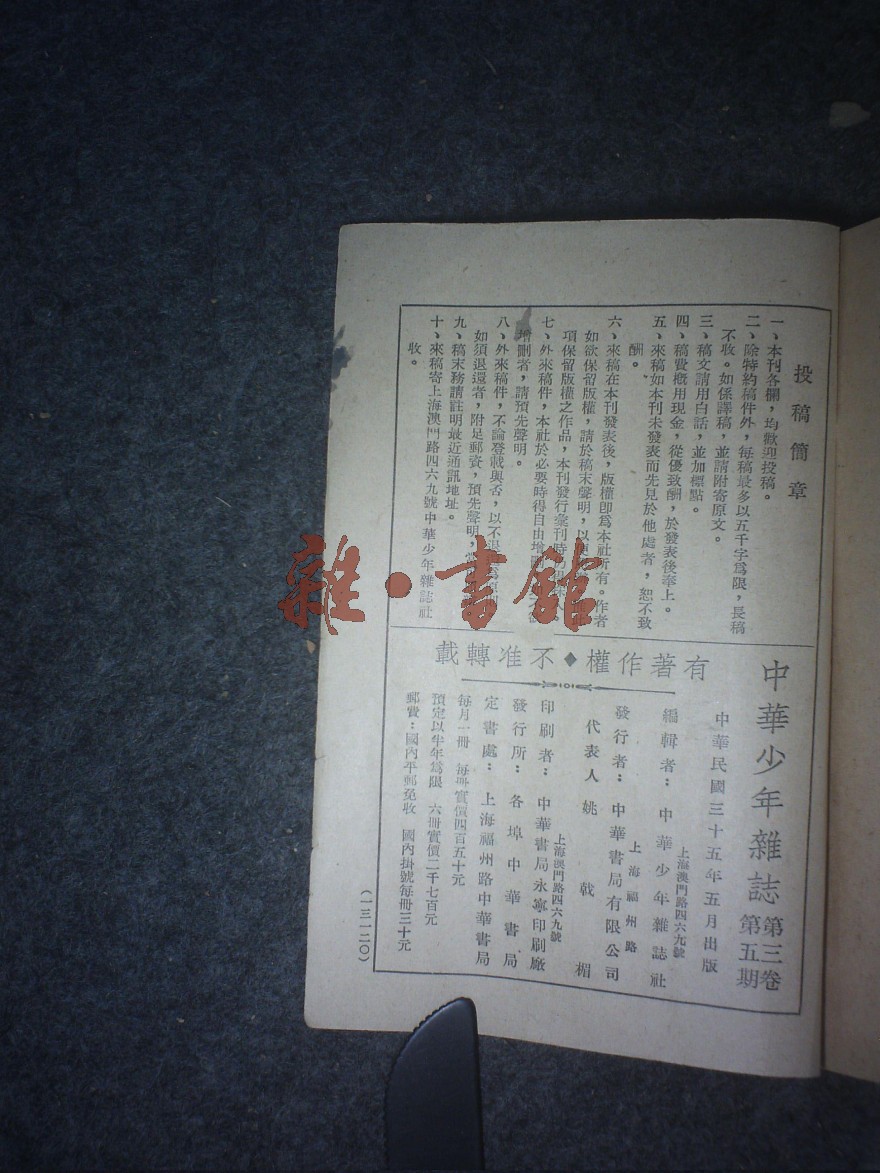 投稿簡章
一、本刊各欄，均歡迎投稿。
二、除特約稿件外，每稿最多以五千字爲限，長稿
不收。如係譯稿，並請附寄原文。
三、稿文請用白話，並加標點。
四、稿費概用現金，從優致酬，於發表後奉上。
五、來稿如本刊未發表而先見於他處者，恕不致
酬。
六、來稿在本刊發表後，版權卽爲本社所有。作者
如欲保留版權，請於稿末聲明，以
項保留版權之作品，本刊發行彙刊時
七、外來稿件，本社於必要時得自由增
增删者，請預先聲明。
八、外來稿件，不論登載與否，以不退
如須退還者，附足郵資，預先聲明，
九、稿末務請註明最近通訊地址。
十、來稿寄上海澳門路四六九號中華少年雜誌社
收。
中華少年雜誌 第三卷 第五期
有著作權◆不准轉載
中華民國三十五年五月出版
編輯者：中華少年雜誌社
上海澳門路四六九號
發行者：中華書局有限公司
上海福州路
代表人 姚戟楣
印刷者：中華書局永寧印刷廠
上海澳門路四六九號
發行所：各埠中華書局
定書處：上海福州路中華書局
每月一冊 每冊實價四百五十元
預定以半年爲限 六冊實價二千七百元
郵費：國內平郵免收 國內掛號每冊三十元
（一三一二〇）
雜·書館